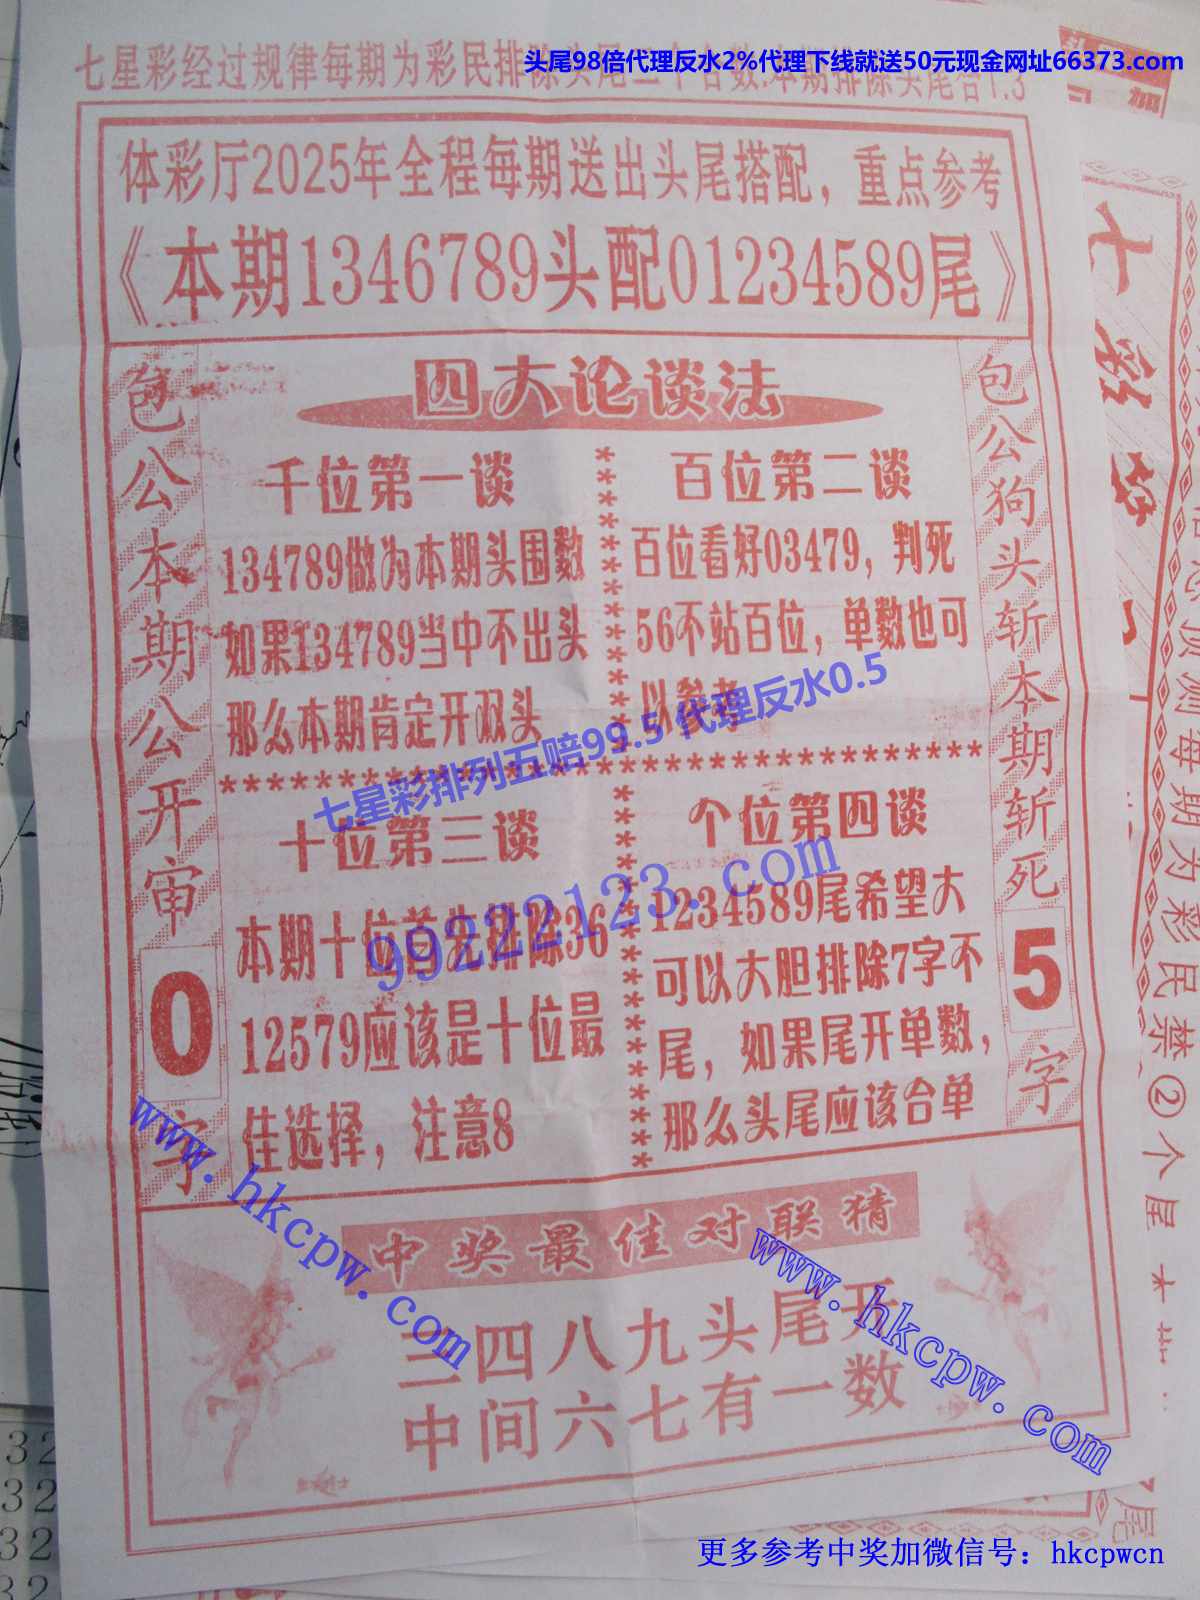 头尾98倍代理反水2%代理下线就送50元现金网址66373.com
七星彩经过规律每期为彩民排除头尾二个合数.本期排除头尾合1.3
体彩厅2025年全程每期送出头尾搭配，重点参考
《本期1346789头配01234589尾》
四大论谈法
包公本期公开审
0
字
包公狗头斩本期斩死
5
字
千位第一谈
134789做为本期头围数
如果134789当中不出头
那么本期肯定开双头
百位第二谈
百位看好03479，判死
56不站百位，单数也可
以参考
七星彩排列五赔99.5 代理反水0.5
十位第三谈
本期十位首先排除36
12579应该是十位最
佳选择，注意8
个位第四谈
1234589尾希望大
可以大胆排除7字不
尾，如果尾开单数，
那么头尾应该合单
99222123.com
中奖最佳对联猜
三四八九头尾开
中间六七有一数
www.hkcpw.com
www.hkcpw.com
七彩
预测每期为彩民禁②个星
尾
32
32
32
32
更多参考中奖加微信号：hkcpwcn